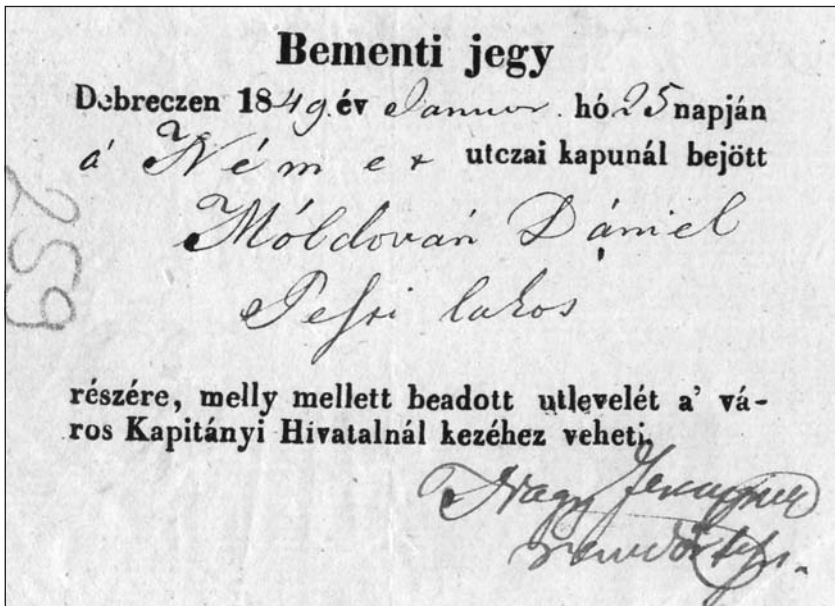 Bementi jegy
Debreczen 1849 év Januar. hó 25 napján
a' Német utczai kapunál bejött
Móldován Dániel
Pesti lakos
259
részére, melly mellett beadott utlevelét a' vá-
ros Kapitányi Hivatalnál kezéhez veheti.
Nagy